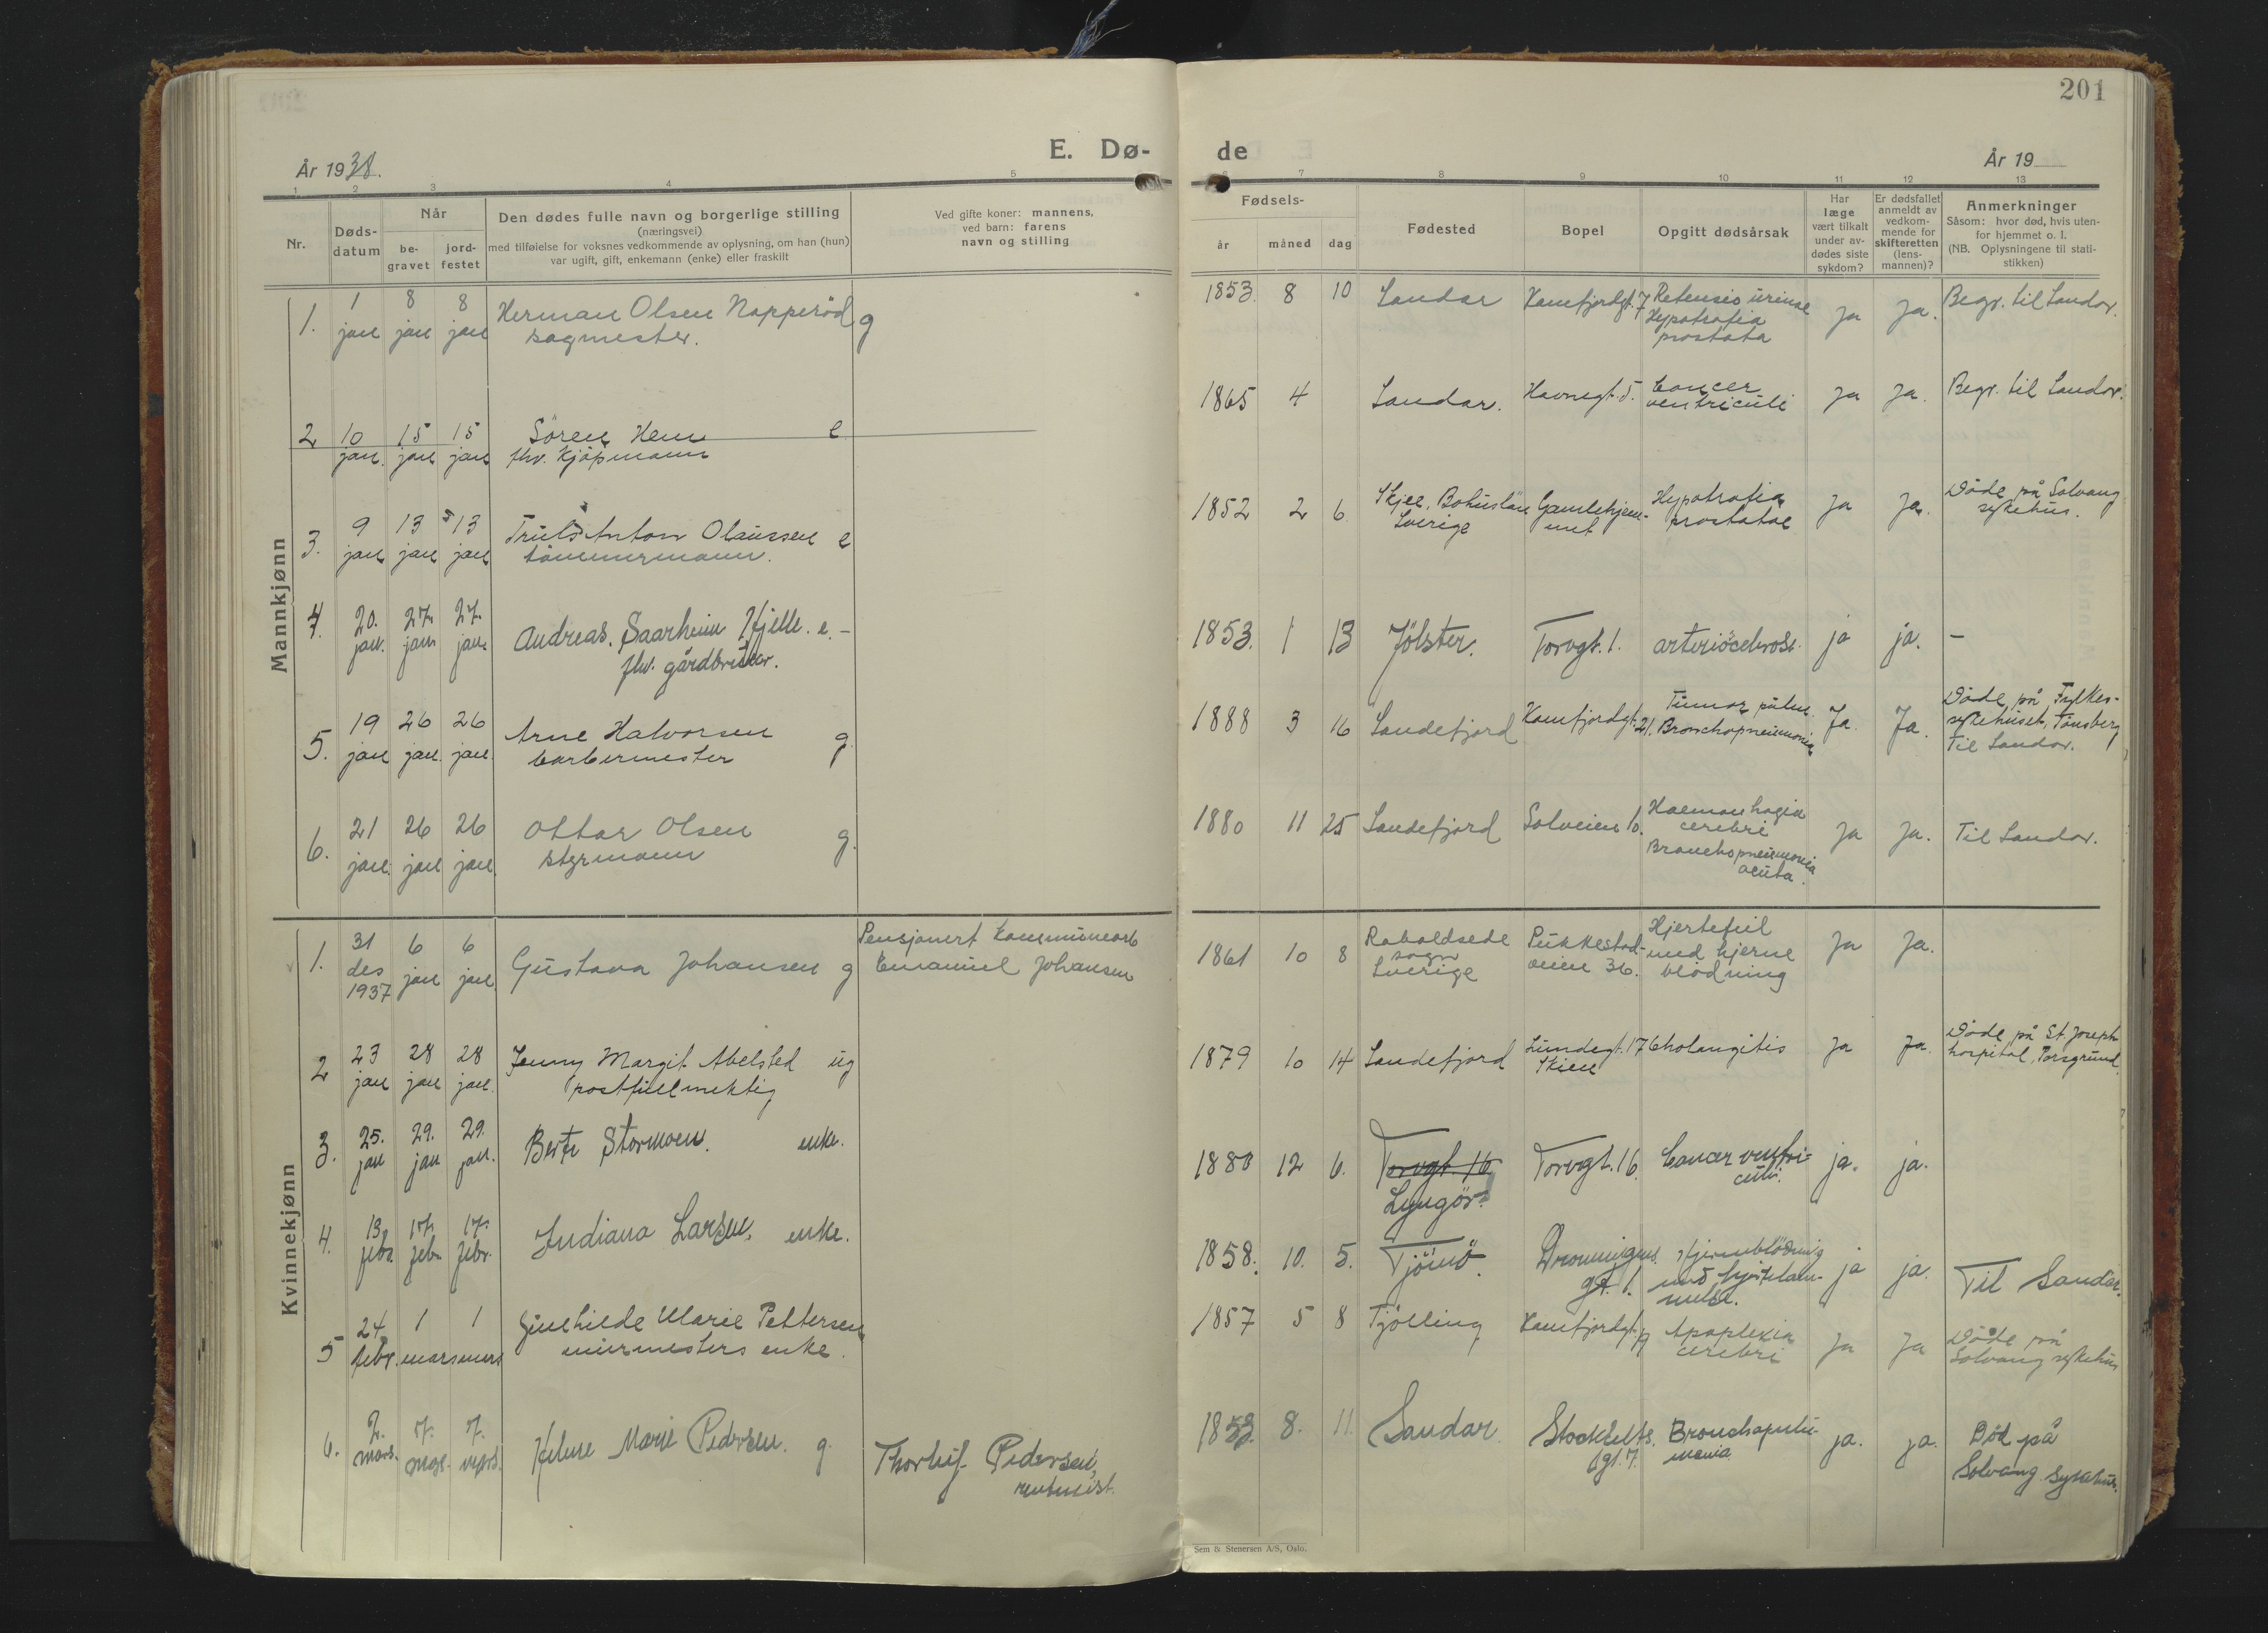 201
E. Dø-
de
År 1938.
År 19
1 2 3 4 5
6 7 8 9 10 11 12 13
Nr.
Døds-
datum
Når
be-
gravet
jord-
festet
Den dødes fulle navn og borgerlige stilling
(næringsvei)
med tilføielse for voksnes vedkommende av oplysning, om han (hun)
var ugift, gift, enkemann (enke) eller fraskilt
Ved gifte koner: mannens,
ved barn: farens
navn og stilling
Fødsels-
år måned dag
Fødested
Bopel
Opgitt dødsårsak
Har
læge
vært tilkalt
under av-
dødes siste
sykdom?
Er dødsfallet
anmeldt av
vedkom-
mende for
skifteretten
(lens-
mannen)?
Anmerkninger
Såsom: hvor død, hvis uten-
for hjemmet o. l.
(NB. Oplysningene til stati-
stikken)
Mannkjønn
1. 1 jan 8 jan 8 jan Herman Olsen Napperöd g
sagmester.
1853. 8 10 Sandar Kamfjordgt. 7 Retensio urinae
Hypotrofia
prostata
Ja Ja. Begr. til Sandar.
2 10 jan. 15 jan 15 jan Sören Hem e
fhv. kjöpmann
1865 4 Sandar. Havnegt. 5. Cancer
ventriculi
Ja Ja. Begr. til Sandar.
3. 9 jan 13 jan 13 jan Truls Anton Olaussen e
tömmermann.
1852 2 6 Skjee, Bohuslän
Sverige
Gamlehjem-
met
Hypotrofia
prostatae
Ja Ja. Döde på Solvang
sykehus.
4. 20. jan. 27. jan 27. jan. Andreas Saarheim Hjelle. e. -
fhv. gårdbruker.
1853. 1 13 Jölster. Torvgt. 1. arteriöcelrose. ja ja. -
5. 19 jan 26 jan. 26 jan. Arne Halvorsen g.
barbermester
1888 3 16 Sandefjord Kamfjordgt. 21. Tumor pulm.
Bronchopneumonia
Ja. Ja. Döde på Fylkes-
sykehuset, Tönsberg
Til Sandar.
6. 21 jan. 26 jan 26 jan. Ottar Olsen g.
styrmann
1880 11 25 Sandefjord Solveien 10. Haemorrhagia
cerebri
Bronchopneumonia
acuta.
Ja Ja. Til Sandar.
Kvinnekjønn
1. 31 des 1937 6 jan 6 jan. Gustava Johansen g
Pensjonert kommunearb
Emanuel Johansen
1861 10 8 sogn
Sverige
Pukkestad-
veien 36.
Hjertefeil
med hjerne
blödning
Ja Ja.
2 23 jan 28 jan 28 jan. Jenny Margit Abelsted ug
postfullmektig
1879 10 14 Sandefjord Lundegt. 17
Skien
Cholangitis
Ja Ja. Döde på St. Joseph
hospital, Porsgrund.
3. 25. jan 29. jan 29. jan. Berte Stormoen. enke.
1880 12 6. Torvgt. 16
Lyngör.
Torvgt. 16. Cancer ventri-
culi.
ja. ja.
4. 13. febr. 17. febr. 17. febr. Indiana Larsen, enke.
1858. 10. 5. Tjömö. Dronningens.
gt. 1.
Hjerneblödning
med hjertelam-
melse.
ja ja. Til Sandar.
5 24. febr. 1 mars 1 mars Gunhilde Marie Pettersen
murmesters enke.
1857 5 8 Tjölling Kamfjordgt. Apoplexia
cerebri
Ja Ja Döde på
Solvang sykehus
6. 2. mars. 7. mars. 7. mars. Helene Marie Pedersen. g.
Thorleif Pedersen,
8. 11. Sandar. Stockflets.
gt. 7.
Bronchopneu-
monia
ja. ja. Död på
Solvang sykehus.
Sem & Stenersen A/S, Oslo.